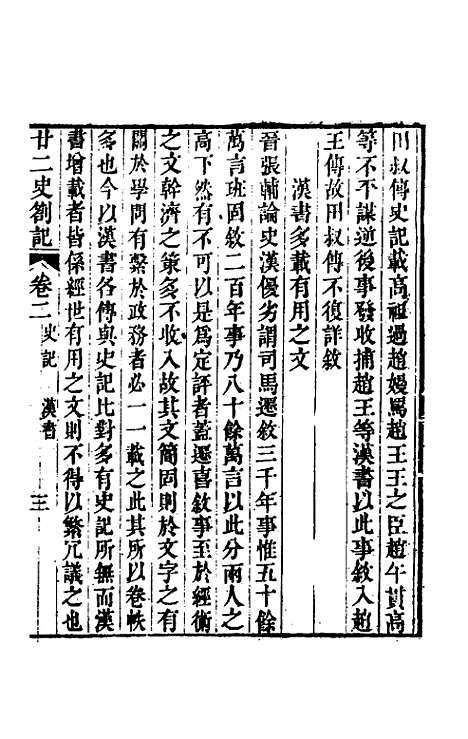 田叔傳史記載高祖過趙嫚罵趙王王之臣趙午貫高
等不平謀逆後事發收捕趙王等漢書以此事敘入趙
王傳故田叔傳不復詳敘
漢書多載有用之文
晉張輔論史漢優劣謂司馬遷敘三千年事惟五十餘
萬言班固敘二百年事乃八十餘萬言以此分兩人之
高下然有不可以是爲定評者蓋遷喜敘事至於經術
之文幹濟之策多不收入故其文簡固則於文字之有
關於學問有繫於政務者必一一載之此其所以卷帙
多也今以漢書各傳與史記比對多有史記所無而漢
書增載者皆係經世有用之文則不得以繁冗議之也
廿二史劄記 卷二 史記 漢書 三